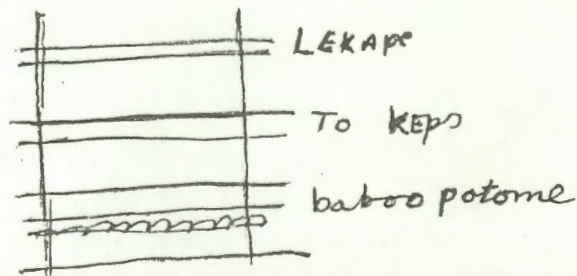 LEKApe
To KEps
baboo potome